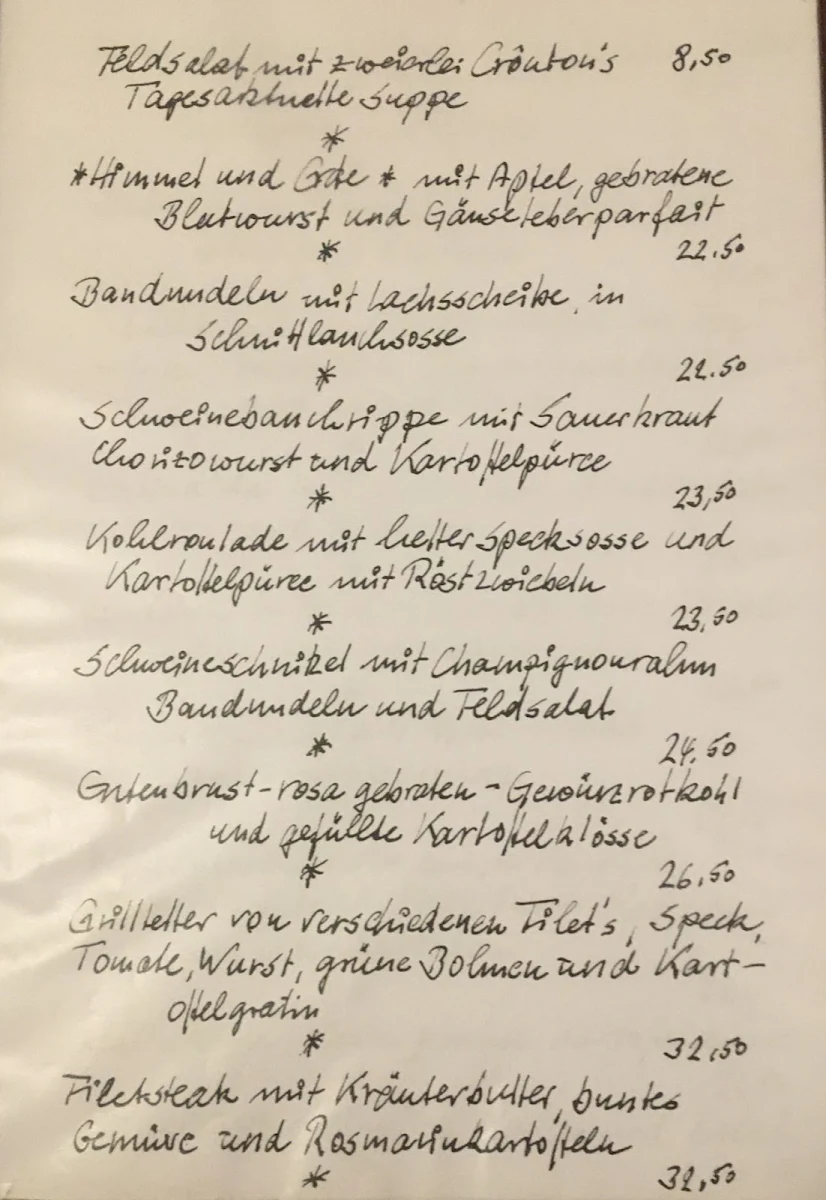 Feldsalat mit zweierlei Croûton's 8,50
Tagesaktuelle Suppe
*
*Himmel und Erde * mit Apfel, gebratene
Blutwurst und Gänseleberparfait
* 22.50
Bandnudeln mit Lachsscheibe, in
Schnittlauchsosse
* 22.50
Schweinebauchrippe mit Sauerkraut
Chorizowurst und Kartoffelpüree
* 23,50
Kohlroulade mit heller Specksosse und
Kartoffelpüree mit Röstzwiebeln
* 23,50
Schweineschnitzel mit Champignonrahm
Bandnudeln und Feldsalat
* 24.50
Entenbrust - rosa gebraten - Gewürzrotkohl
und gefüllte Kartoffelklösse
* 26,50
Grillteller von verschiedenen Filet's, Speck,
Tomate, Wurst, grüne Bohnen und Kart-
offelgratin
* 32,50
Filetsteak mit Kräuterbutter, buntes
Gemüse und Rosmarinkartoffeln
* 32,50